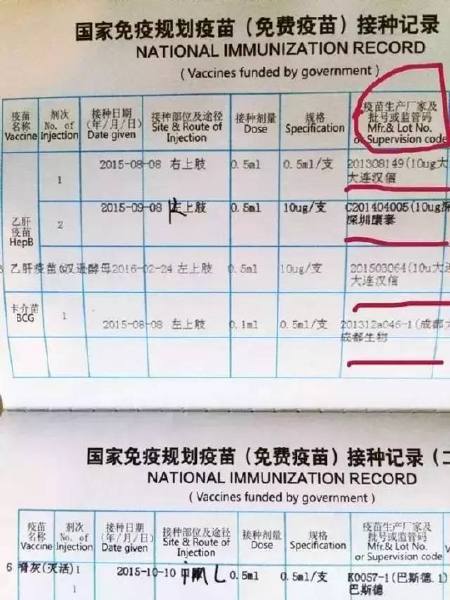 国家免疫规划疫苗（免费疫苗）接种记录
NATIONAL IMMUNIZATION RECORD
( Vaccines funded by government )
疫苗名称 Vaccine 剂次 No. of Injection 接种日期(年/月/日) Date given 接种部位及途径 Site & Route of Injection 接种剂量 Dose 规格 Specification 疫苗生产厂家及批号或监管码 Mfr.& Lot No. or Supervision code
乙肝疫苗 HepB
1 2015-08-08 右上肢 0.5ml 0.5ml/支 201308149(10ug大
大连汉信
2 2015-09-08 左上肢 0.5ml 10ug/支 C201404005(10ug深
深圳康泰
乙肝疫苗 汉逊酵母 2016-02-24 左上肢 0.5ml 10ug/支 201503064(10u大
大连汉信
卡介苗 BCG 1 2015-08-08 左上肢 0.1ml 0.5ml/支 201312a046-1(成都
成都生物
国家免疫规划疫苗（免费疫苗）接种记录（二
NATIONAL IMMUNIZATION RECORD
( Vaccines funded by government )
疫苗名称 Vaccine 剂次 No. of Injection 接种日期(年/月/日) Date given 接种部位及途径 Site & Route of Injection 接种剂量 Dose 规格 Specification 疫苗生产厂家及批号或监管码 Mfr.& Lot No. or Supervision code
6 脊灰(灭活) 1 2015-10-10 0.5ml 0.5ml/支 K0057-1(巴斯德.1)
巴斯德